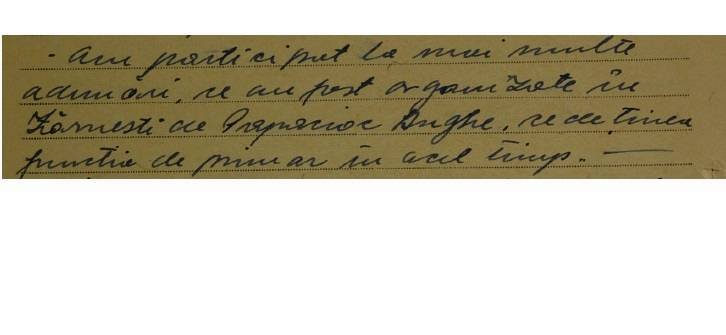 - Am participat la mai multe
adunări, ce au fost organizate în
Zărnești de Prapacioc Anghe, ce deținea
funcția de primar în acel timp. —